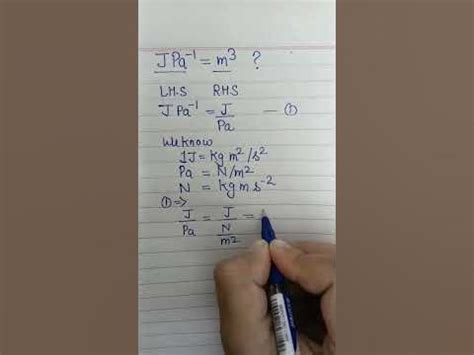 JPa⁻¹ = m³ ?
L.H.S R.H.S
JPa⁻¹ = J/Pa — ①
We know
1J = Kg m²/s²
Pa = N/m²
N = kg m s⁻²
① ⇒
J/Pa = J/(N/m²) =